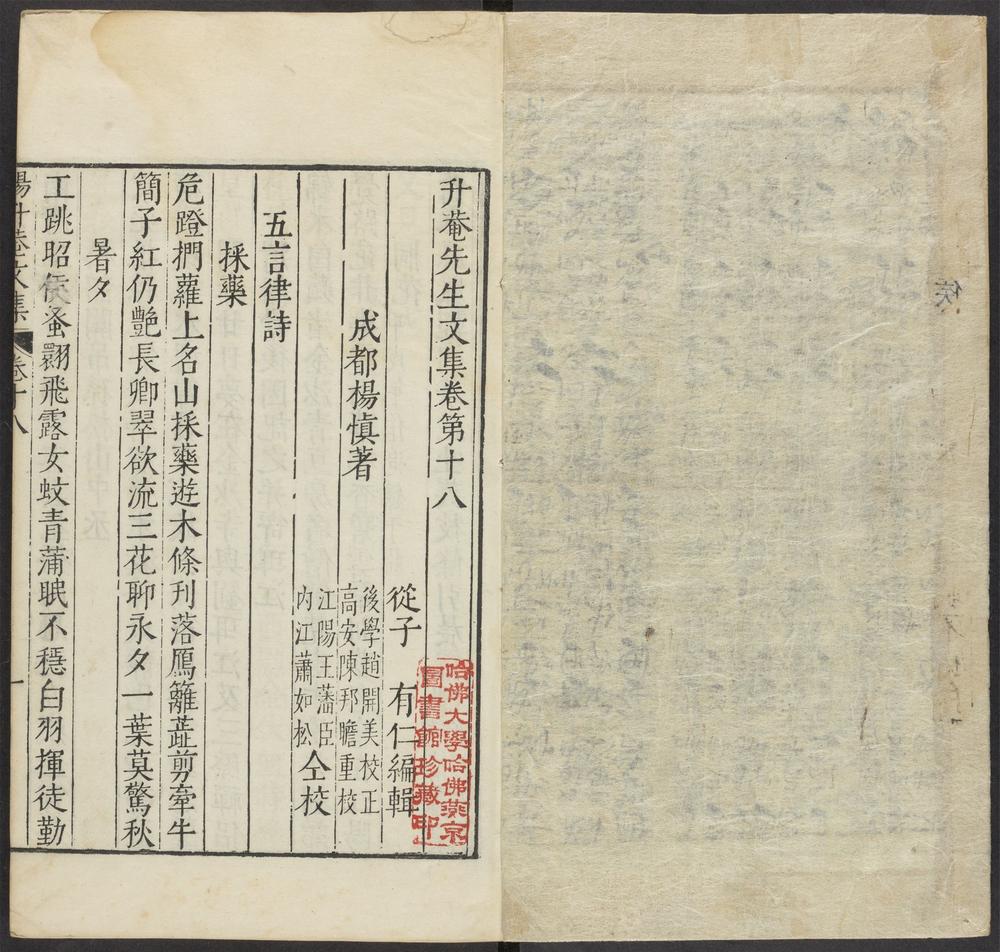 升菴先生文集卷第十八
成都楊慎著
從子 有仁編輯
後學趙開美校正
高安陳邦瞻重校
江陽王藩臣
内江蕭如松
仝校
五言律詩
採藥
危蹬捫蘿上名山採藥遊木條刋落鴈籬葈剪牽牛
簡子紅仍艷長卿翠欲流三花聊永夕一葉莫驚秋
暑夕
工跳昭侯蚤翾飛露女蚊青蒲眠不穩白羽揮徒勤
楊升菴文集
卷十八
一
哈佛大學哈佛燕京
圖書館珍藏印
矦